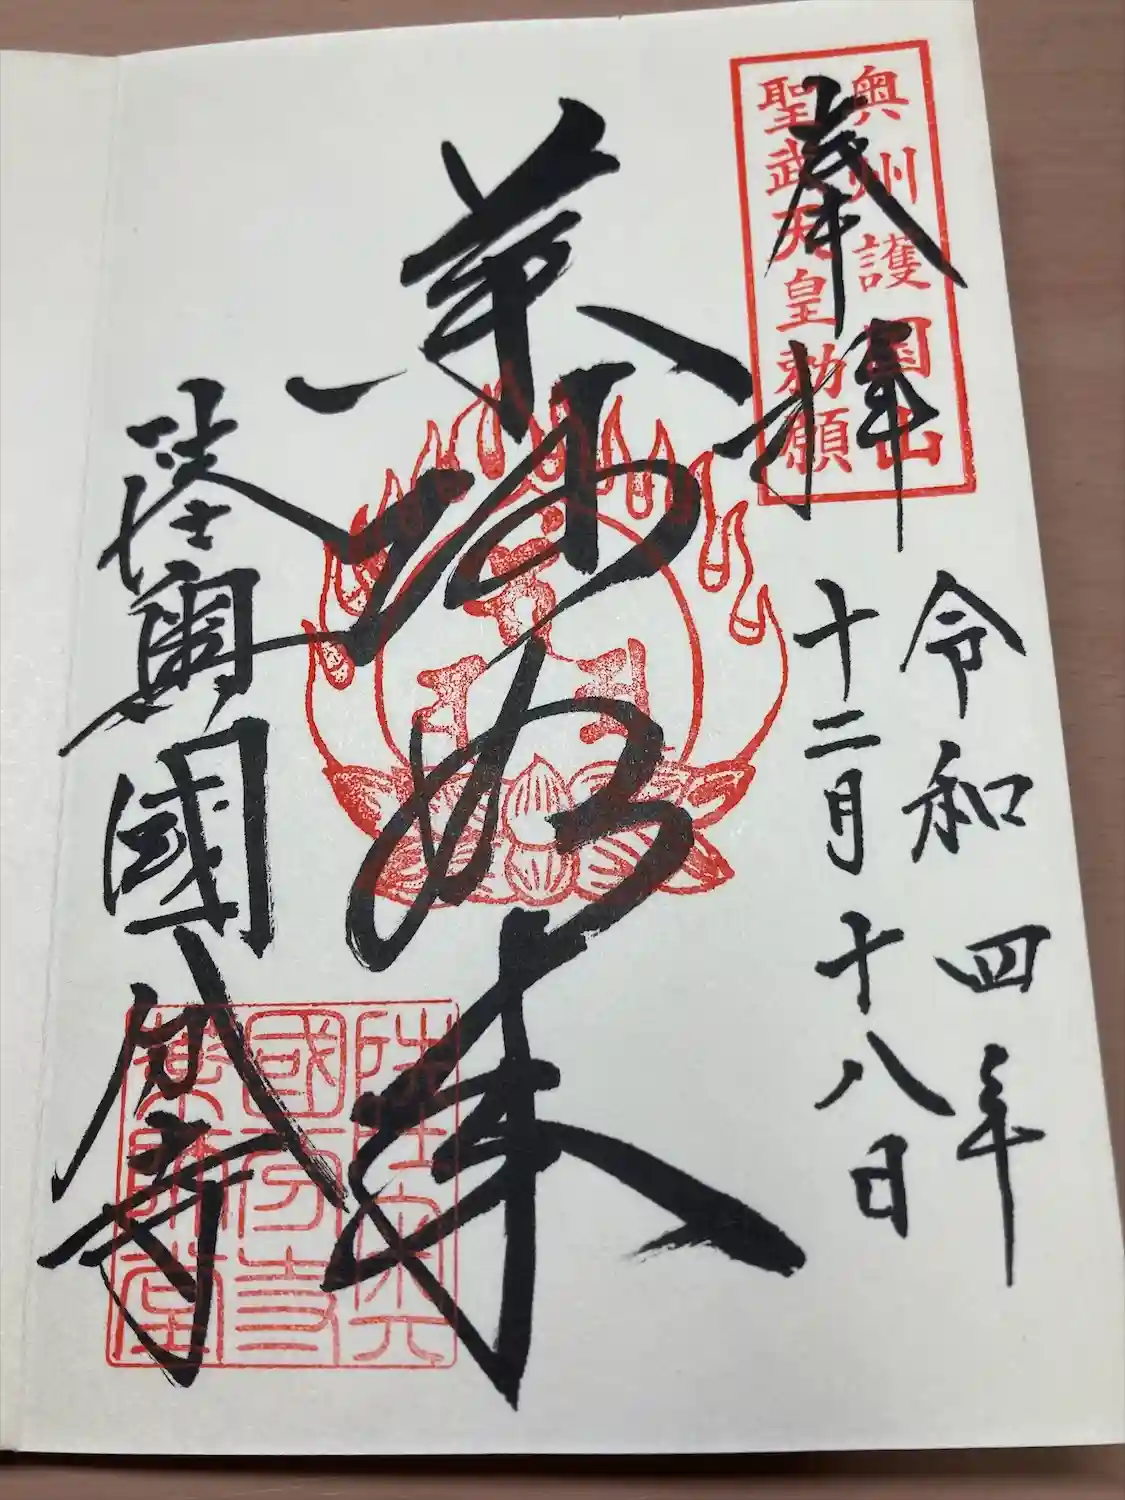 奥州護国山
聖武天皇勅願
奉拝
令和四年
十二月十八日
薬師如来
陸奥國分寺
陸奥
國分寺
薬師堂